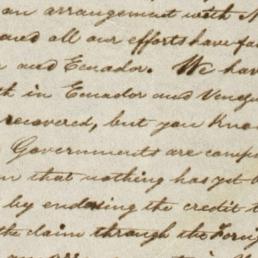 an arrangement with
and all our efforts have fa
and Ecuador. We hav
th in Ecuador and Venezu
recovered, but you Kno
Governments are comp
n that nothing has yet
by endorsing the credit t
the claim through the Forei